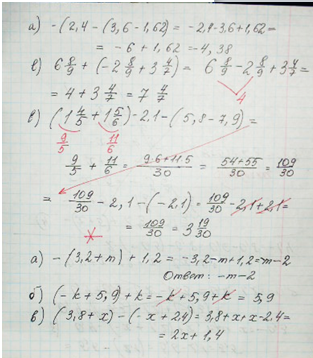 а) -(2,4-(3,6-1,62)= -2,4-3,6+1,62=
= -6+1,62=-4,38
б) 6 8/9 + (-2 8/9 + 3 4/7) = 6 8/9 - 2 8/9 + 3 4/7 =
4
= 4 + 3 4/7 = 7 4/7
в) (1 4/5 + 1 5/6) - 2,1 - (5,8-7,9) =
9/5 11/6
9/5 + 11/6 = 9·6+11·5/30 = 54+55/30 = 109/30
= 109/30 - 2,1 - (-2,1) = 109/30 - 2,1+2,1=
= 109/30 = 3 19/30
а) -(3,2+m)+1,2=-3,2-m+1,2=m-2
Ответ: -m-2
б) (-k+5,9)+k=-k+5,9+k = 5,9
в) (3,8+x)-(-x+2,4)=3,8+x+x-2,4=
= 2x+1,4